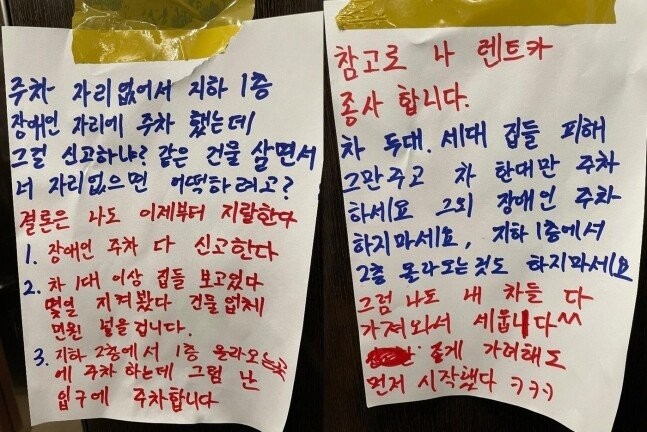 주차 자리없어서 지하 1층
장애인 자리에 주차 했는데
그걸 신고하냐? 같은 건물 살면서
너 자리없으면 어떡하려고?
결론은 나도 이제부터 지랄한다
1. 장애인 주차 다 신고한다
2. 차 1대 이상 집들 보고있다
몇일 지켜봤다 건물 업체
민원 넣을겁니다.
3. 지하 2층에서 1층 올라오는곳
에 주차 하는데 그럼 난
입구에 주차합니다
참고로 나 렌트카
종사 합니다.
차 두대. 세대 집들 피해
그만주고 차 한대만 주차
하세요 그외 장애인 주차
하지마세요, 지하 1층에서
2층 올라오는것도 하지마세요
그럼 나도 내 차들 다
가져와서 세웁니다^^
먼저 시작했다 ㅋㅋㅋ